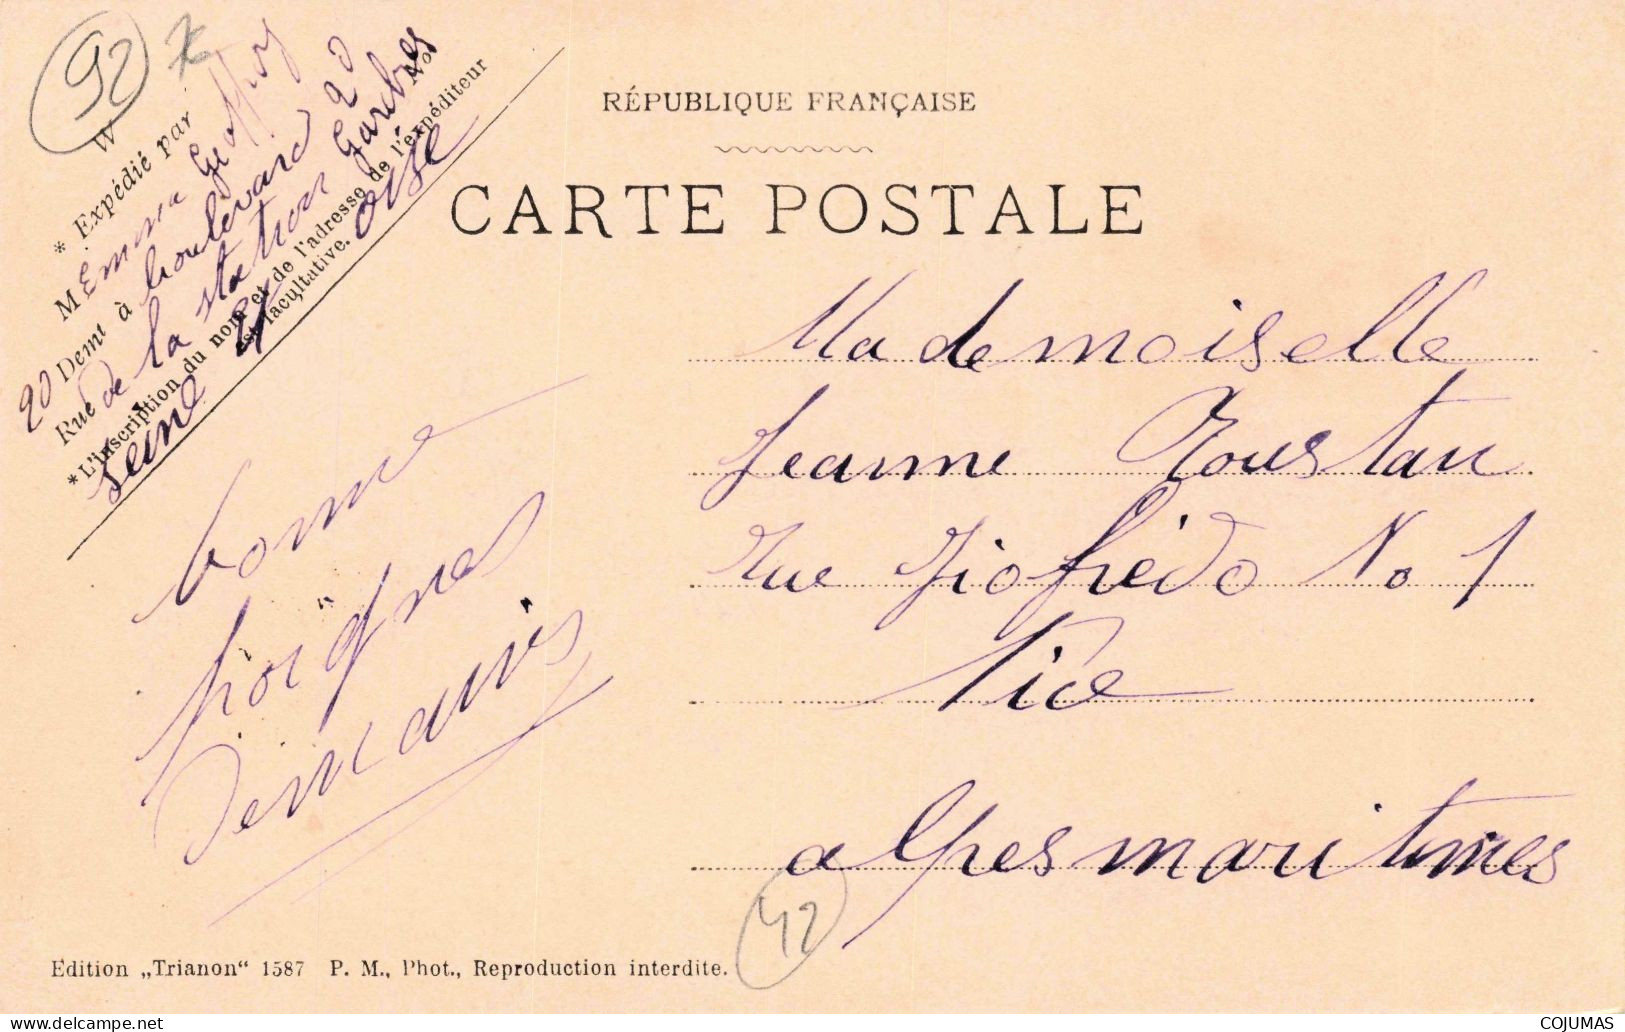 92
W
* Expédié par
M Emma Geoffroy
20 Demt à boulevard 20
Rue de la station Garches No
* L'inscription du nom et de l'adresse de l'expéditeur
est facultative.
Seine et oise
RÉPUBLIQUE FRANÇAISE
CARTE POSTALE
Mademoiselle
Jeanne Roustan
Rue Giofrédo No 1
Nice
alpes maritimes
bonne
poignes
42
Edition „Trianon“ 1587 P. M., Phot., Reproduction interdite.
COJUMAS